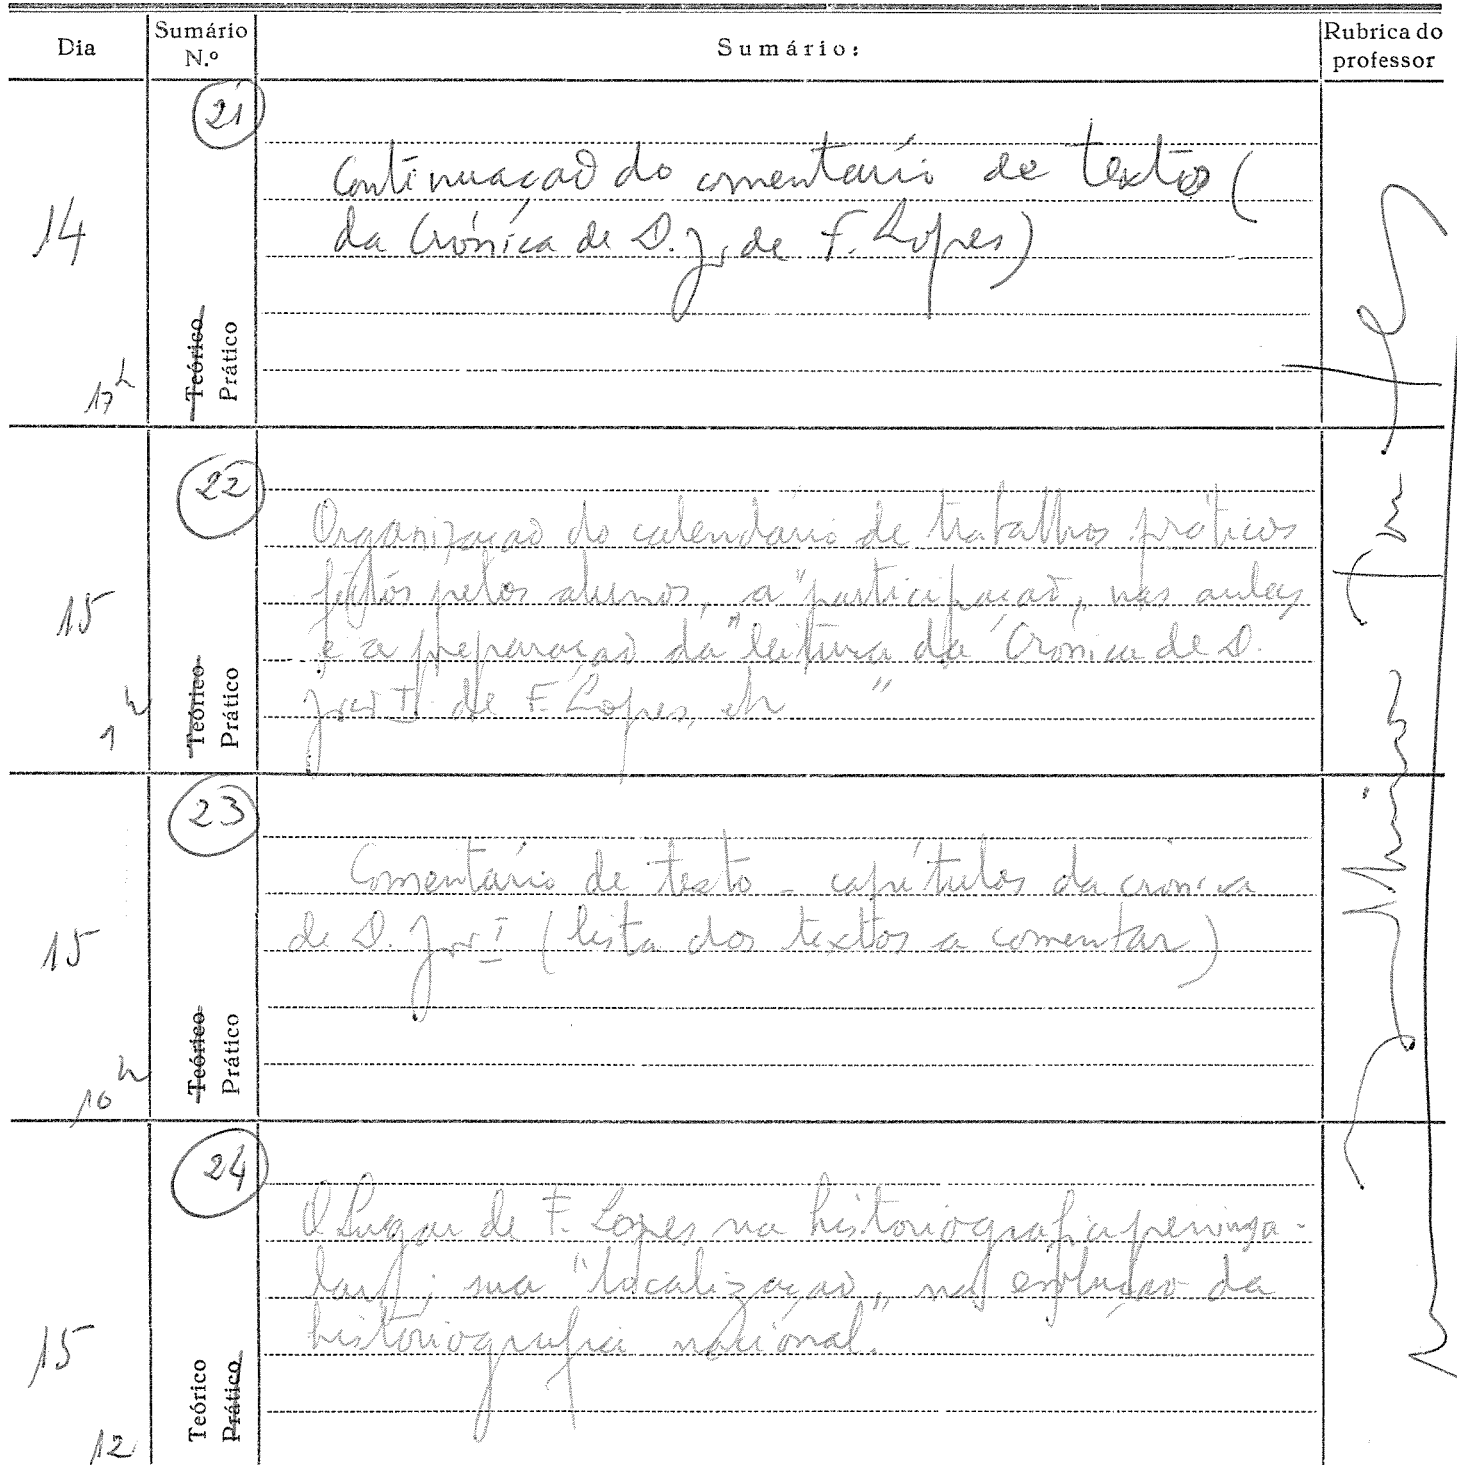 Dia
Sumário N.º
Sumário:
Rubrica do professor
14
17h
21
Teórico
Prático
Continuação do comentário de textos (
da Crónica de D. J. de F. Lopes)
15
22
Teórico
Prático
Organização do calendário de trabalhos práticos
feitos pelos alunos, a "participação" nas aulas
e a preparação da "leitura da Crónica de D.
I de F. Lopes,
15
10h
23
Teórico
Prático
Comentário de texto - capítulos da crónica
de D. I (lista dos textos a comentar)
15
12
24
Teórico
Prático
O Lugar de F. Lopes na historiografia
sua "localização" na evolução da
historiografia nacional.